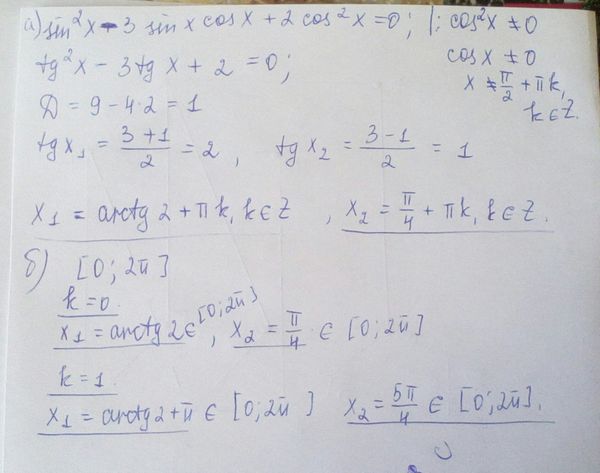 а) sin²x - 3 sin x cos x + 2 cos²x = 0; |: cos²x ≠ 0
cos x ≠ 0
tg²x - 3tg x + 2 = 0;
x ≠ π/2 + πk,
k ∈ Z.
D = 9 - 4·2 = 1
tg x₁ = (3+1)/2 = 2, tg x₂ = (3-1)/2 = 1
x₁ = arctg 2 + πk, k ∈ Z, x₂ = π/4 + πk, k ∈ Z.
б) [0; 2π]
k = 0.
x₁ = arctg 2 ∈ [0; 2π], x₂ = π/4 ∈ [0; 2π]
k = 1.
x₁ = arctg 2 + π ∈ [0; 2π] x₂ = 5π/4 ∈ [0; 2π].